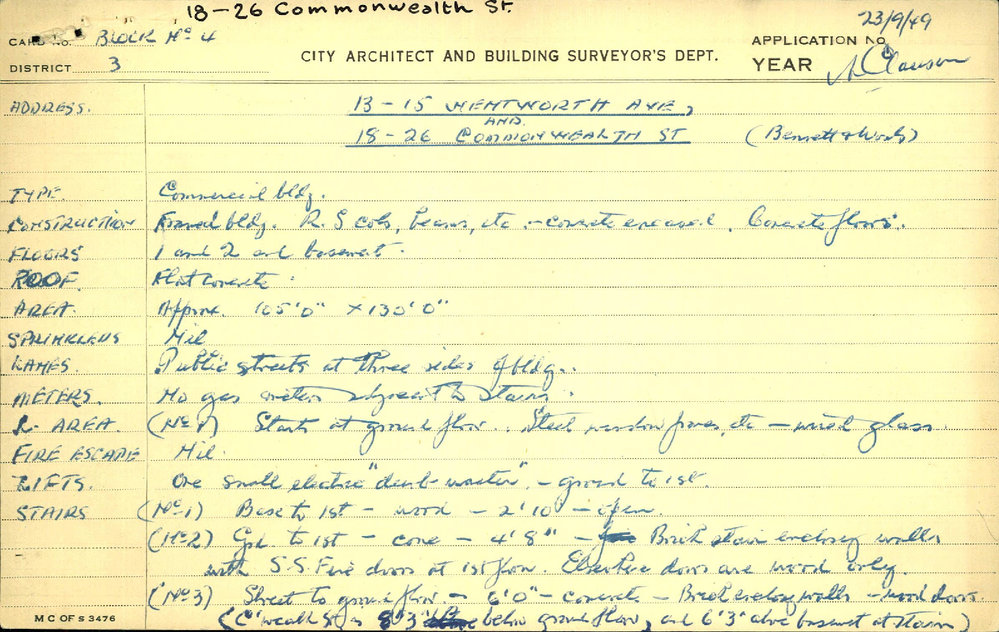 18-26 Commonwealth St.
CARD No. BLOCK No 4
23/9/49
APPLICATION No.
DISTRICT 3
CITY ARCHITECT AND BUILDING SURVEYOR'S DEPT.
YEAR
ADDRESS. 13-15 WENTWORTH AVE,
AND
18-26 COMMONWEALTH ST (Bennett & Wood)
TYPE. Commercial bldg.
CONSTRUCTION Framed bldg. R.S cols, beams, etc - concrete encased. Concrete floors.
FLOORS 1 and 2 and basement.
ROOF. Flat concrete.
AREA. Approx. 105'0" x 130'0"
SPRINKLERS Nil
LANES. Public streets at three sides of bldg.
METERS. No gas meters adjacent to stairs.
L. AREA. (No 1) Starts at ground floor. Steel window frames, etc - wired glass.
FIRE ESCAPE Nil.
LIFTS. One small electric "dumb waiter". - ground to 1st.
STAIRS (No 1) Base to 1st - wood - 2'10" - open.
(No 2) Grd to 1st - conc - 4'8" - Brick stair enclosing walls
with S.S. Fire doors at 1st floor. Elsewhere doors are wood only.
(No 3) Street to ground floor. - 6'0" - concrete - Brick enclosing walls - wood doors.
(C'wealth St is 8'3" below ground floor, and 6'3" above basement at stairs)
M C OF S 3476